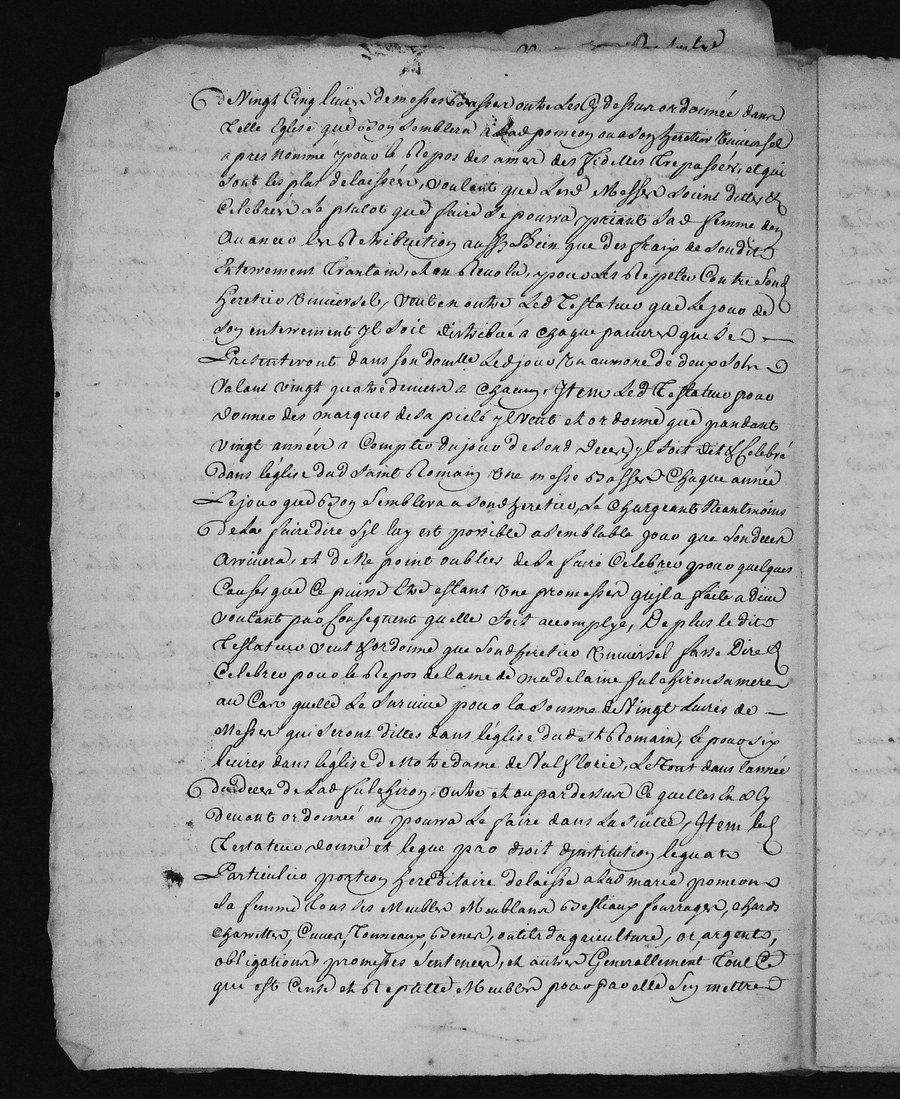 de Vingt Cinq livres de messes basses outre Les Cy dessus ordonnée dans
Telle Eglise que bon semblera a Lad pomeon ou a son heretier Universel
apres Nommé pour le Repos des ames des fidelles Trepassés, et qui
sont les plus delaissés, voulant que Lesd Messes soint dittes &
Celebrés Le plutot que faire Se pourra priant Sad femme den
Avancer les Retribution aussy Bien que des fraix de Son dit
Enterrement Trantain, et Revolu, pour Les Repeter Contre Sond
heretier Universel, veut en outre Led Testateur que Le jour de
Son enterrement yl soit distribué a Chaque pauvres qui Se
Presenteront dans son domille Led jour Un aumone de deux sols
valant vingt quatre deniers a Chacun, Item Led Testateur pour
donner des marques de sa pieté yl veut et ordonne que pandant
vingt année a Compter du jour de Sond Deces, yl soit dit & Celebré
dans l'église dud Saint Romain Une messe Basse Chaque année
Le jour que bon Semblera a Sond heretier, Le Chargeant Neantmoins
de La faire dire S'il luy est possible a semblable jour que Son deces
Arrivera, et de Ne point oublier de La faire Celebrer pour quelques
Causes que Ce puisse Etre estant Une promesse quil a faite a dieu
voulant par Consequent quelle Soit accomplye, De plus ledit
Testateur veut & ordonne que Sond heretier Universel fasse Dire &
Celebrer pour le Repos de lame de madelaine sa mere
au Cas quelle Le Survive pour la Somme de Vingt Livres de
Messes qui Seront dittes dans l'église dud St Romain, & pour six
livres dans l'église de Notre dame de Valflorie, Le Tout dans l'année
du deces de Lad outre et au par dessus Ce quelles
devant ordonné ou pourra Le faire dans La Suitte, Item led
Testateur donne et legue par droit dinstitution legat
Particulier portion hereditaire delaisse a Lad marie pomeon
Sa femme Tous Ses Meubles Meublans Bestiaux fourrages, chars
Charettes, Cuves, Tonneaux, Benes, outils dagriculture, or, argents,
obligations promesses Sentences, et autres Generallement Tout Ce
qui est Censé et Reputté Meubles pour par elle S'en mettre